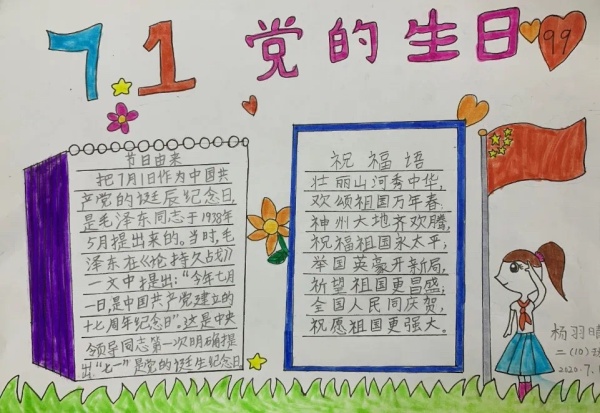 7.1 党的生日
99
节日由来
把7月1日作为中国共
产党的诞辰纪念日,
是毛泽东同志于1938年
5月提出来的。当时,毛
泽东在《论持久战》
一文中提出:“今年七月
一日,是中国共产党建立的
十七周年纪念日”。这是中央
领导同志第一次明确提
出“七一”是党的诞生纪念日
祝福语
壮丽山河秀中华,
欢颂祖国万年春;
神州大地齐欢腾,
祝福祖国永太平;
举国英豪开新局,
祈望祖国更昌盛;
全国人民同庆贺,
祝愿祖国更强大。
杨羽晴
二(10)班
2020.7.1